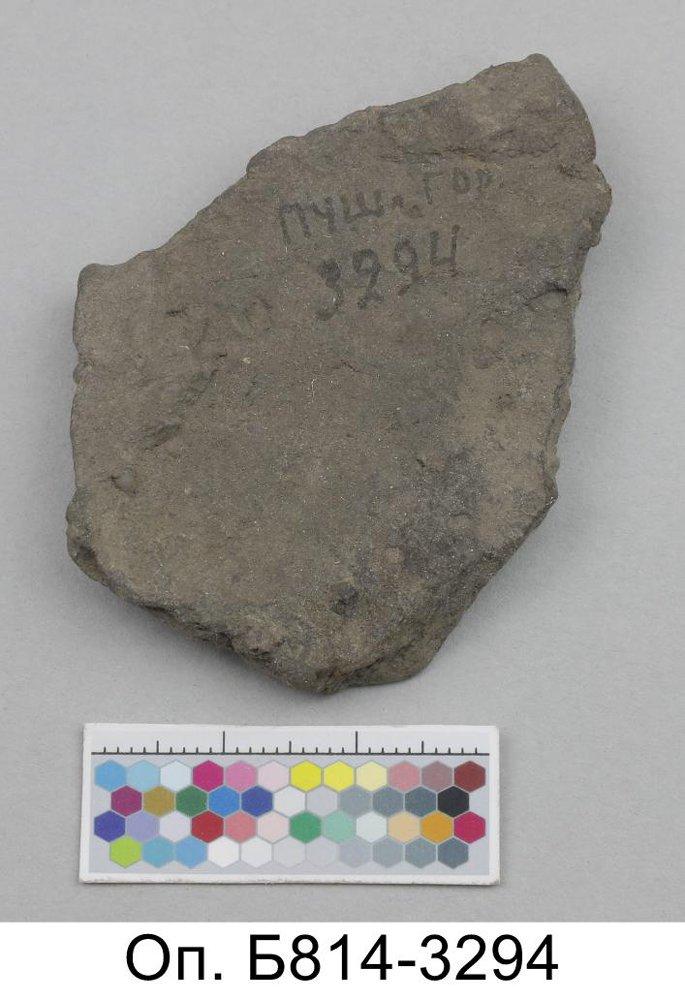 пуш. гор.
3294
Оп. Б814-3294